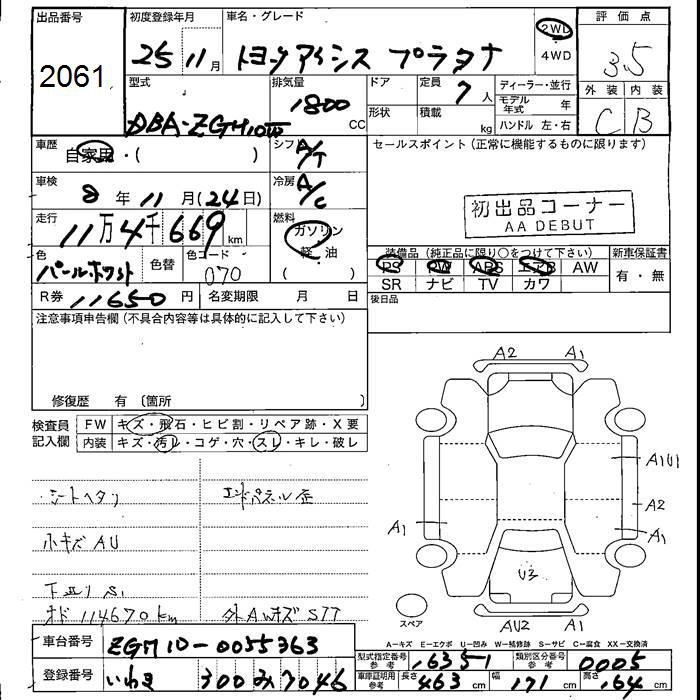 出品番号 2061
初度登録年月 25 11月
車名・グレード トヨタアイシス プラタナ
2WD
4WD
評価点 3.5
外装 内装
C B
型式 DBA-ZGM10W
排気量 1800 CC
ドア
形状
定員 7人
積載 kg
ディーラー・並行
モデル年式 年
ハンドル 左・右
車歴 自家用・( )
シフト A/T
セールスポイント (正常に機能するものに限ります)
車検 8年11月(24日)
冷房 A/C
初出品コーナー
AA DEBUT
走行 11万4千669km
燃料 ガソリン
軽油
( )
色 パールホワイト
色替
色コード 070
装備品 (純正品に限り○をつけて下さい)
新車保証書
PS PW ABS エアB AW
SR ナビ TV カワ
有・無
R券 11650円
名変期限 月 日
後日品
注意事項申告欄 (不具合内容等は具体的に記入して下さい)
修復歴 有 (箇所 )
A2 A1
検査員記入欄
FW キズ・飛石・ヒビ割・リペア跡・X要
内装 キズ・汚レ・コゲ・穴・スレ・キレ・破レ
シートヘタリ
エンドパネル歪
小キズ AU
下廻り S1
オド 114670km
外AWキズ STT
A1U1
A2
A1
A1
U3
AU2 A1
スペア
A-キズ E-エクボ U-凹み W-補修跡 S-サビ C-腐食 XX-交換済
車台番号 ZGM10-0055363
型式指定番号 参考 16351
類別区分番号 参考 0005
登録番号 いわき 300 み 7046
車庫証明用 参考 長さ 463 cm 幅 171 cm 高さ 164 cm